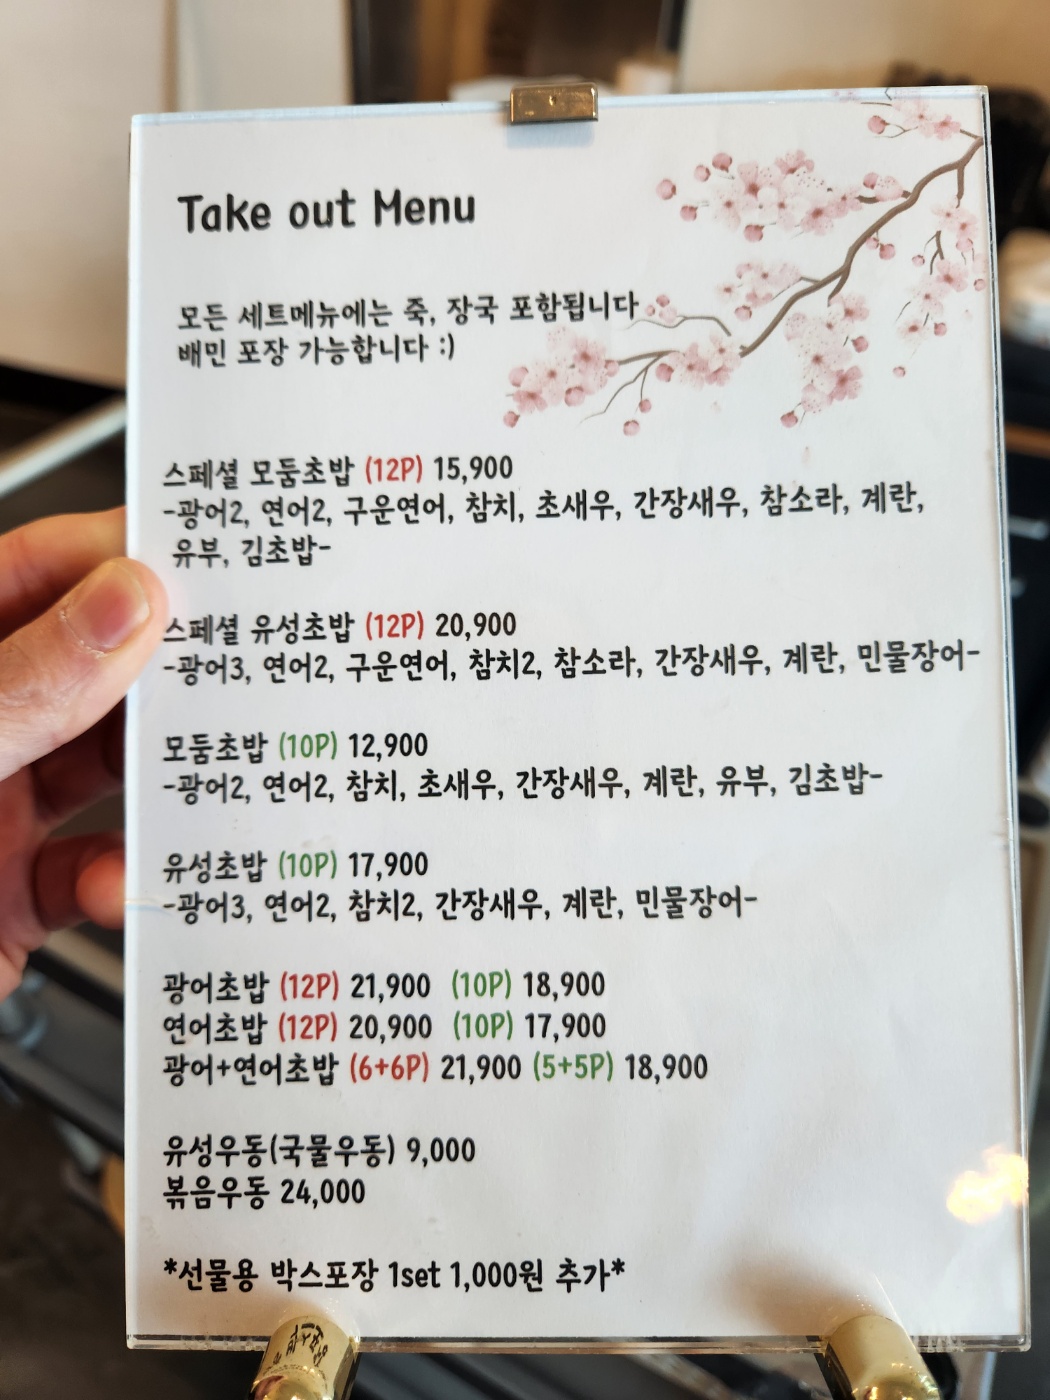 Take out Menu
모든 세트메뉴에는 죽, 장국 포함됩니다
배민 포장 가능합니다 :)
스페셜 모둠초밥 (12P) 15,900
-광어2, 연어2, 구운연어, 참치, 초새우, 간장새우, 참소라, 계란,
유부, 김초밥-
스페셜 유성초밥 (12P) 20,900
-광어3, 연어2, 구운연어, 참치2, 참소라, 간장새우, 계란, 민물장어-
모둠초밥 (10P) 12,900
-광어2, 연어2, 참치, 초새우, 간장새우, 계란, 유부, 김초밥-
유성초밥 (10P) 17,900
-광어3, 연어2, 참치2, 간장새우, 계란, 민물장어-
광어초밥 (12P) 21,900 (10P) 18,900
연어초밥 (12P) 20,900 (10P) 17,900
광어+연어초밥 (6+6P) 21,900 (5+5P) 18,900
유성우동(국물우동) 9,000
볶음우동 24,000
*선물용 박스포장 1set 1,000원 추가*